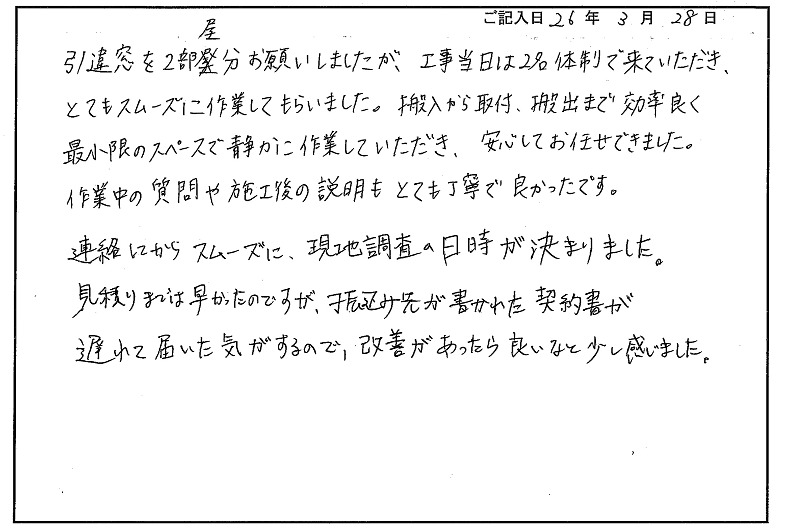 ご記入日 26年 3月 28日
引違窓を2部屋分お願いしましたが、工事当日は2名体制で来ていただき、
とてもスムーズに作業してもらいました。搬入から取付、搬出まで効率良く
最小限のスペースで静かに作業していただき、安心してお任せできました。
作業中の質問や施工後の説明もとても丁寧で良かったです。
連絡してからスムーズに、現地調査の日時が決まりました。
見積りまでは早かったのですが、振込み先が書かれた契約書が
遅れて届いた気がするので、改善があったら良いなと少し感じました。